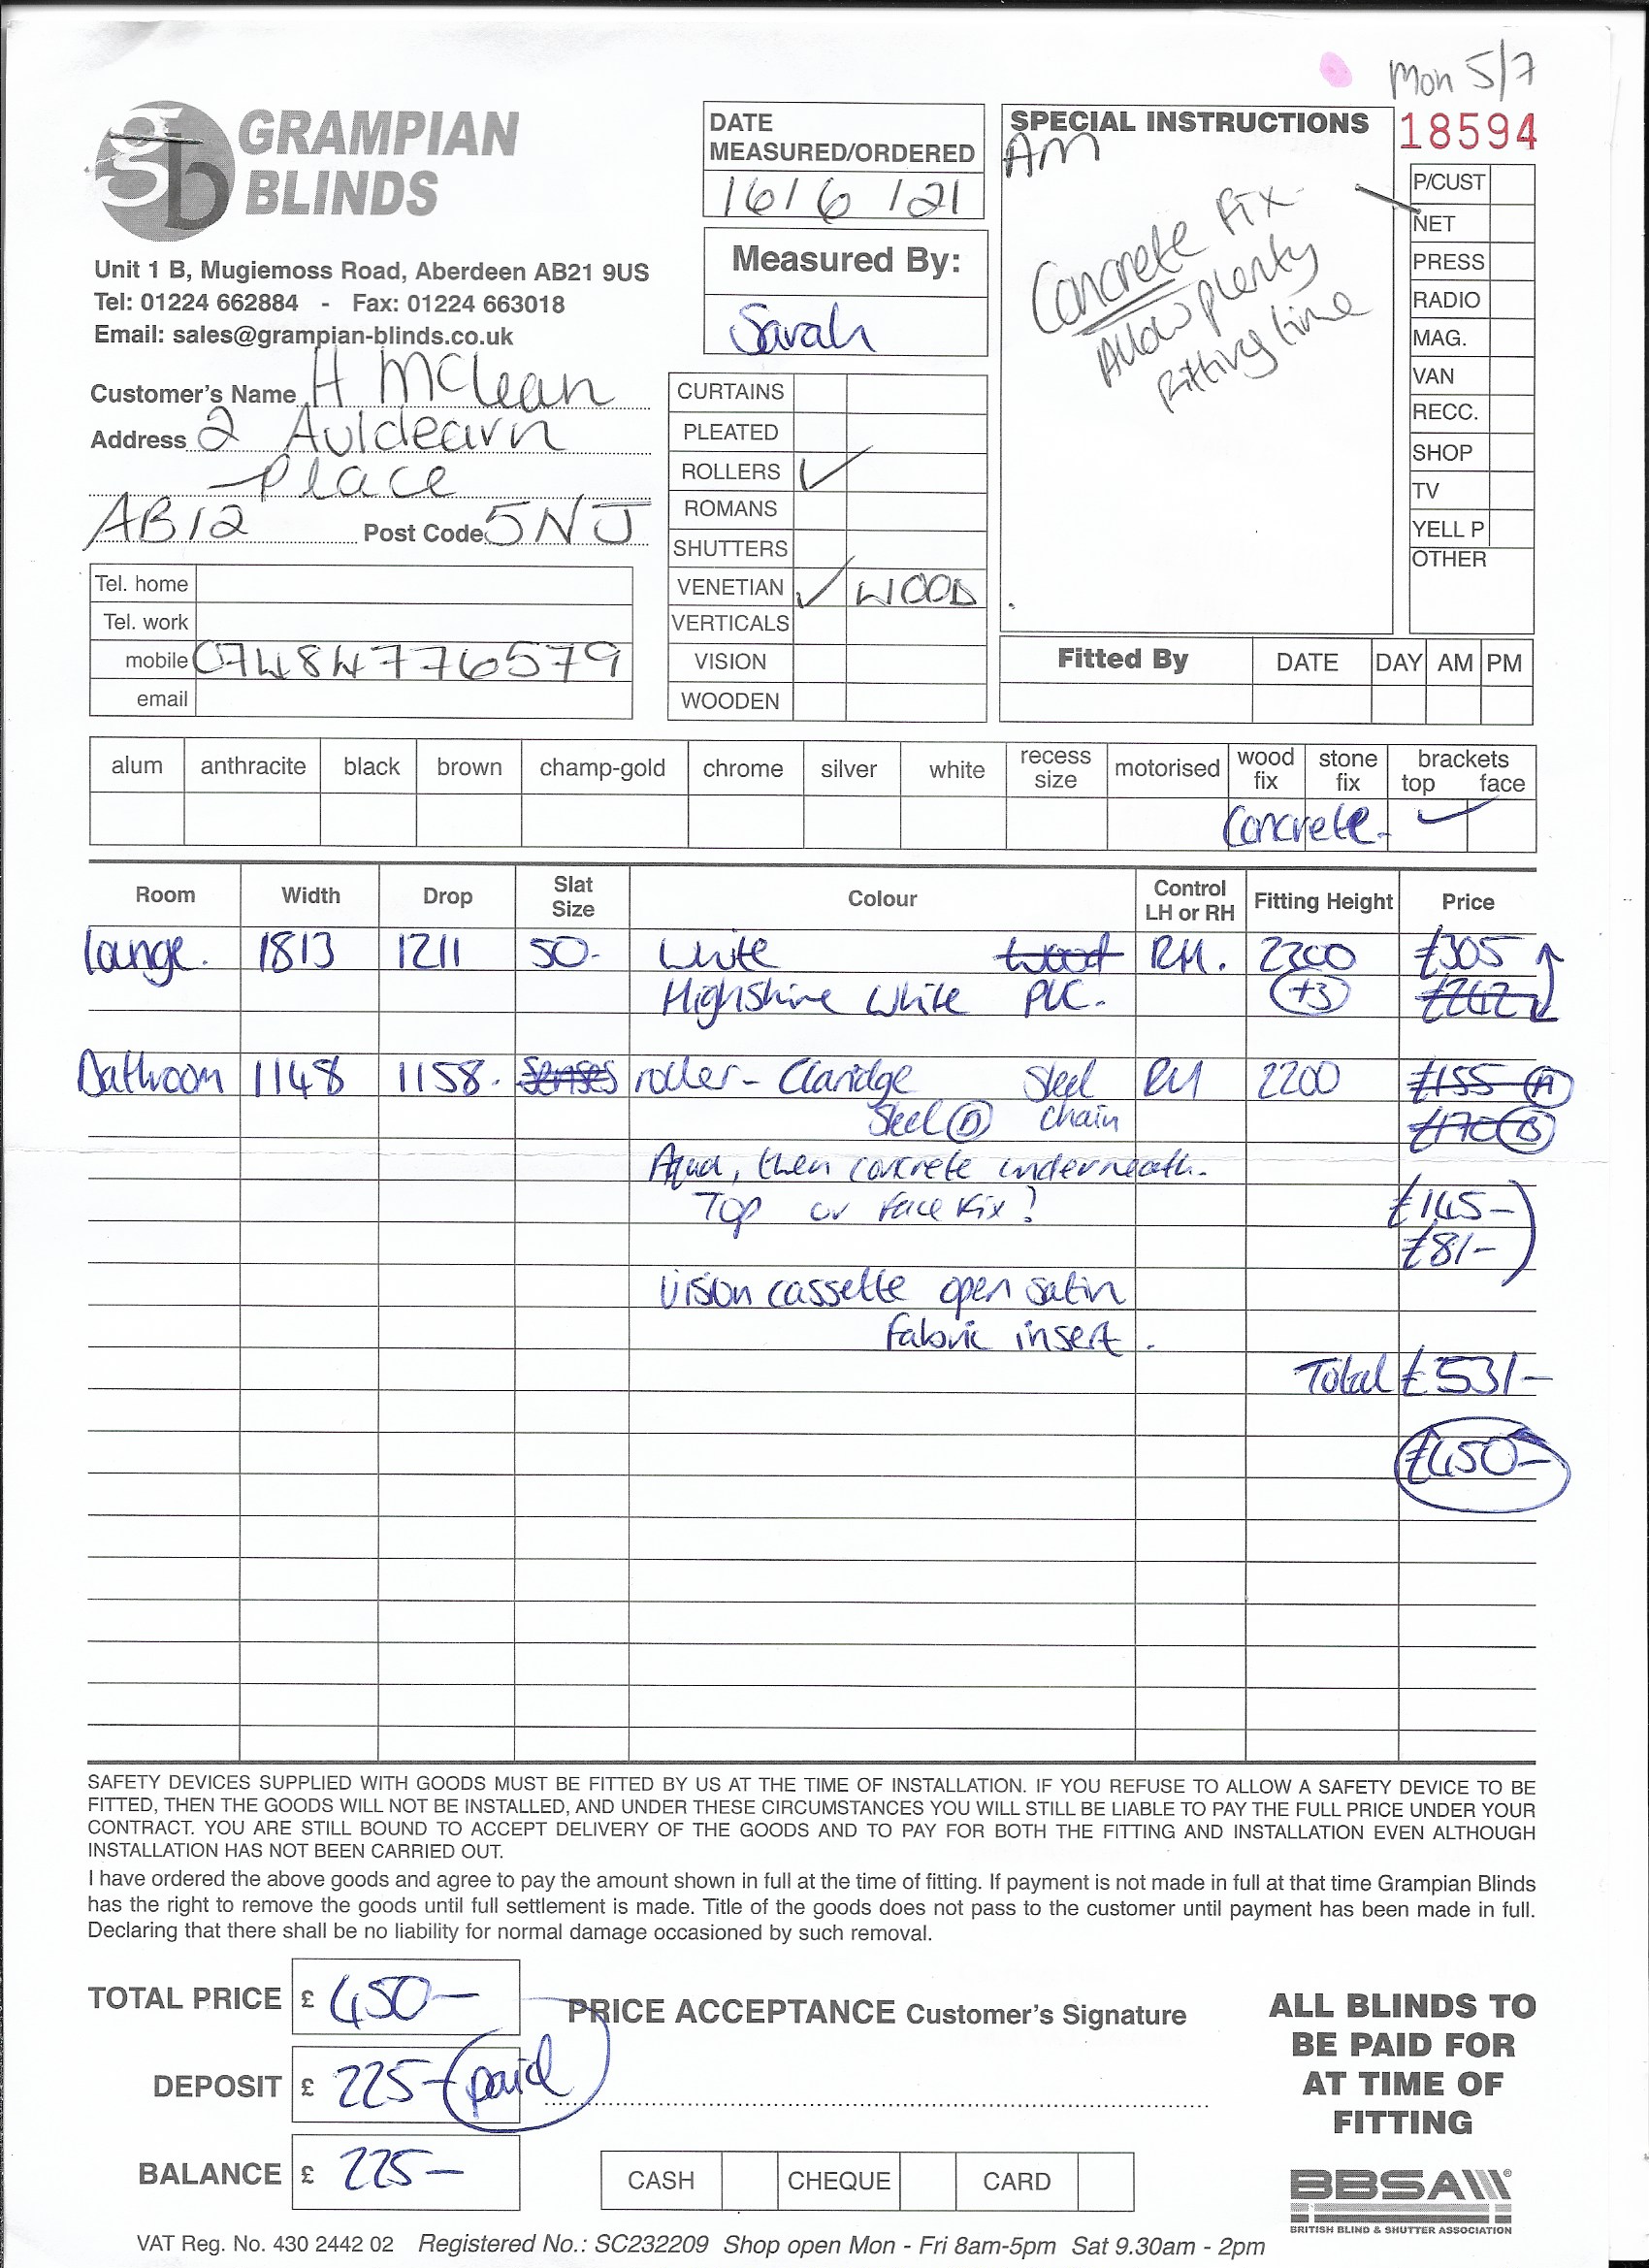 Mon 5/7
GRAMPIAN
BLINDS
Unit 1 B, Mugiemoss Road, Aberdeen AB21 9US
Tel: 01224 662884 - Fax: 01224 663018
Email: sales@grampian-blinds.co.uk
DATE
MEASURED/ORDERED
16/6/21
Measured By:
Sarah
SPECIAL INSTRUCTIONS
AM
Concrete Fix
Allow plenty
Fitting time
18594
P/CUST
NET
PRESS
RADIO
MAG.
VAN
RECC.
SHOP
TV
YELL P
OTHER
Customer's Name H McLean
Address 2 Auldearn
Place
AB12 Post Code 5NJ
Tel. home
Tel. work
mobile 07484776579
email
CURTAINS
PLEATED
ROLLERS ✓
ROMANS
SHUTTERS
VENETIAN ✓ WOOD
VERTICALS
VISION
WOODEN
Fitted By DATE DAY AM PM
alum anthracite black brown champ-gold chrome silver white recess size motorised wood fix stone fix brackets top face
Concrete- ✓
Room Width Drop Slat Size Colour Control LH or RH Fitting Height Price
Lounge. 1813 1211 50- White wood RH. 2300 £305
Highshine White PVC. +3 £242
Bathroom 1148 1158. Senses roller - Claridge Steel RH 2200 £155 A
Steel D chain £170 B
Aqua, then concrete underneath.
Top or face fix? £145-
£81-
Vision cassette open satin
fabric insert.
Total £531-
£450-
SAFETY DEVICES SUPPLIED WITH GOODS MUST BE FITTED BY US AT THE TIME OF INSTALLATION. IF YOU REFUSE TO ALLOW A SAFETY DEVICE TO BE
FITTED, THEN THE GOODS WILL NOT BE INSTALLED, AND UNDER THESE CIRCUMSTANCES YOU WILL STILL BE LIABLE TO PAY THE FULL PRICE UNDER YOUR
CONTRACT. YOU ARE STILL BOUND TO ACCEPT DELIVERY OF THE GOODS AND TO PAY FOR BOTH THE FITTING AND INSTALLATION EVEN ALTHOUGH
INSTALLATION HAS NOT BEEN CARRIED OUT.
I have ordered the above goods and agree to pay the amount shown in full at the time of fitting. If payment is not made in full at that time Grampian Blinds
has the right to remove the goods until full settlement is made. Title of the goods does not pass to the customer until payment has been made in full.
Declaring that there shall be no liability for normal damage occasioned by such removal.
TOTAL PRICE £ 450-
PRICE ACCEPTANCE Customer's Signature
DEPOSIT £ 225- paid
BALANCE £ 225-
CASH CHEQUE CARD
ALL BLINDS TO
BE PAID FOR
AT TIME OF
FITTING
BBSA
BRITISH BLIND & SHUTTER ASSOCIATION
VAT Reg. No. 430 2442 02 Registered No.: SC232209 Shop open Mon - Fri 8am-5pm Sat 9.30am - 2pm